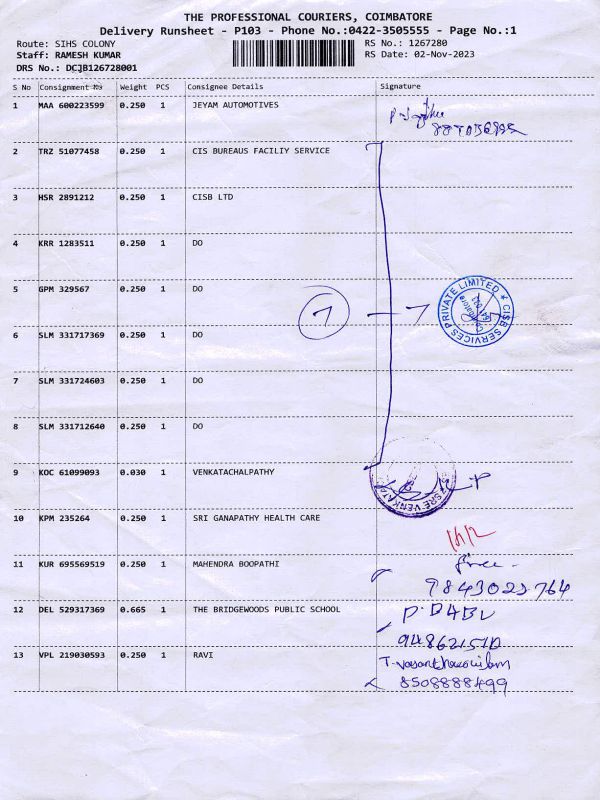 THE PROFESSIONAL COURIERS, COIMBATORE
Delivery Runsheet - P103 - Phone No.:0422-3505555 - Page No.:1
Route: SIHS COLONY RS No.: 1267280
Staff: RAMESH KUMAR RS Date: 02-Nov-2023
DRS No.: DCJB126728001
S No Consignment No Weight PCS Consignee Details Signature
1 MAA 600223599 0.250 1 JEYAM AUTOMOTIVES
2 TRZ 51077458 0.250 1 CIS BUREAUS FACILIY SERVICE
3 HSR 2891212 0.250 1 CISB LTD
4 KRR 1283511 0.250 1 DO
5 GPM 329567 0.250 1 DO
7 - 7
CISB SERVICES PRIVATE LIMITED
6 SLM 331717369 0.250 1 DO
7 SLM 331724603 0.250 1 DO
8 SLM 331712640 0.250 1 DO
9 KOC 61099093 0.030 1 VENKATACHALPATHY
SREE VENKAT
10 KPM 235264 0.250 1 SRI GANAPATHY HEALTH CARE
11 KUR 695569519 0.250 1 MAHENDRA BOOPATHI
9843023764
12 DEL 529317369 0.665 1 THE BRIDGEWOODS PUBLIC SCHOOL
13 VPL 219030593 0.250 1 RAVI
8508888499